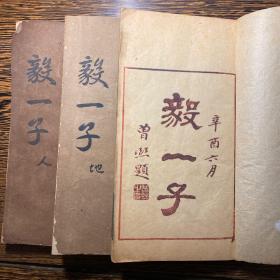 辛酉六月
毅一子
曾熙題
毅一子
地
毅一子
人